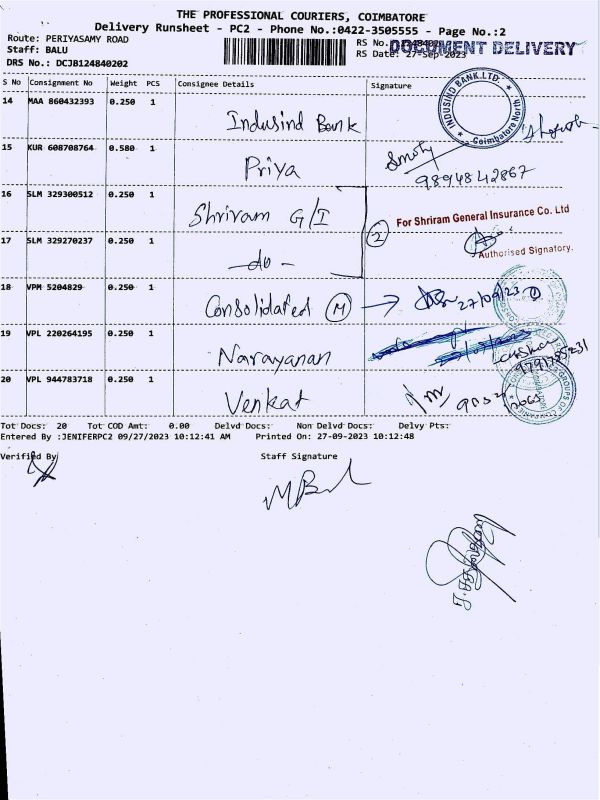 THE PROFESSIONAL COURIERS, COIMBATORE
Delivery Runsheet - PC2 - Phone No.:0422-3505555 - Page No.:2
Route: PERIYASAMY ROAD
Staff: BALU
DRS No.: DCJB124840202
RS No.
RS Date: 27-Sep-2023
DOCUMENT DELIVERY
S No Consignment No Weight PCS Consignee Details Signature
14 MAA 860432393 0.250 1 Indusind Bank
INDUSIND BANK LTD. Coimbatore North
15 KUR 608708764 0.580 1 Priya
9894842867
16 SLM 329300512 0.250 1 Shriram G/I
2 For Shriram General Insurance Co. Ltd
17 SLM 329270237 0.250 1 -do-
Authorised Signatory.
18 VPM 5204829 0.250 1 Consolidated M → 27/09/23
19 VPL 220264195 0.250 1 Narayanan
20 VPL 944783718 0.250 1 Venkat
Tot Docs: 20 Tot COD Amt: 0.00 Delvd Docs: Non Delvd Docs: Delvy Pts:
Entered By :JENIFERPC2 09/27/2023 10:12:41 AM Printed On: 27-09-2023 10:12:48
Verified By Staff Signature